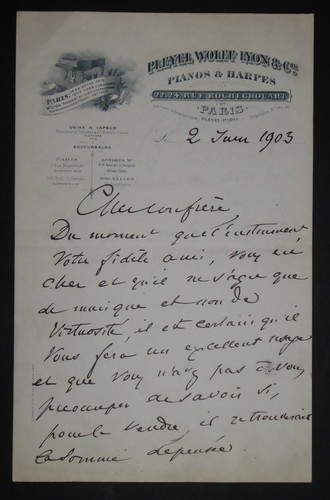 PLEYEL WOLFF LYON & Cie
PIANOS & HARPES
22.24 RUE ROCHECHOUART
PARIS
PARIS
USINE A VAPEUR
SUCCURSALES
PARIS
LONDRES W.
Le 2 Juin 1903
Cher confrère
Du moment que l'instrument
votre fidèle ami, vous est
cher et qu'il ne s'agit que
de musique et non de
virtuosité, il est certain qu'il
vous fera un excellent usage
et que vous n'avez pas à vous
préoccuper de savoir si,
pour le vendre, il retrouverait
la somme dépensée.